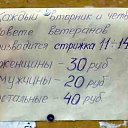 Каждый вторник и четв
Совете Ветеранов
производится стрижка 11-14
женщины - 30 руб
мужчины - 20 руб
остальные - 40 руб